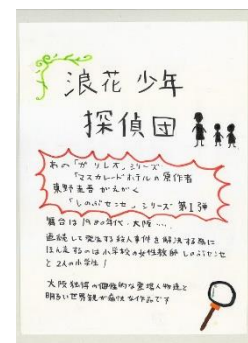 浪花少年
探偵団
あの「ガリレオ」シリーズ
「マスカレードホテル」の原作者
東野圭吾がえがく
「しのぶセンセ」シリーズ 第1弾
舞台は1980年代・大阪…。
連続して発生する殺人事件を解決する為に
ほん走するのは小学校の女性教師しのぶセンセ
と2人の小学生!
大阪独特の個性的な登場人物達と
明るい世界観が痛快な作品です